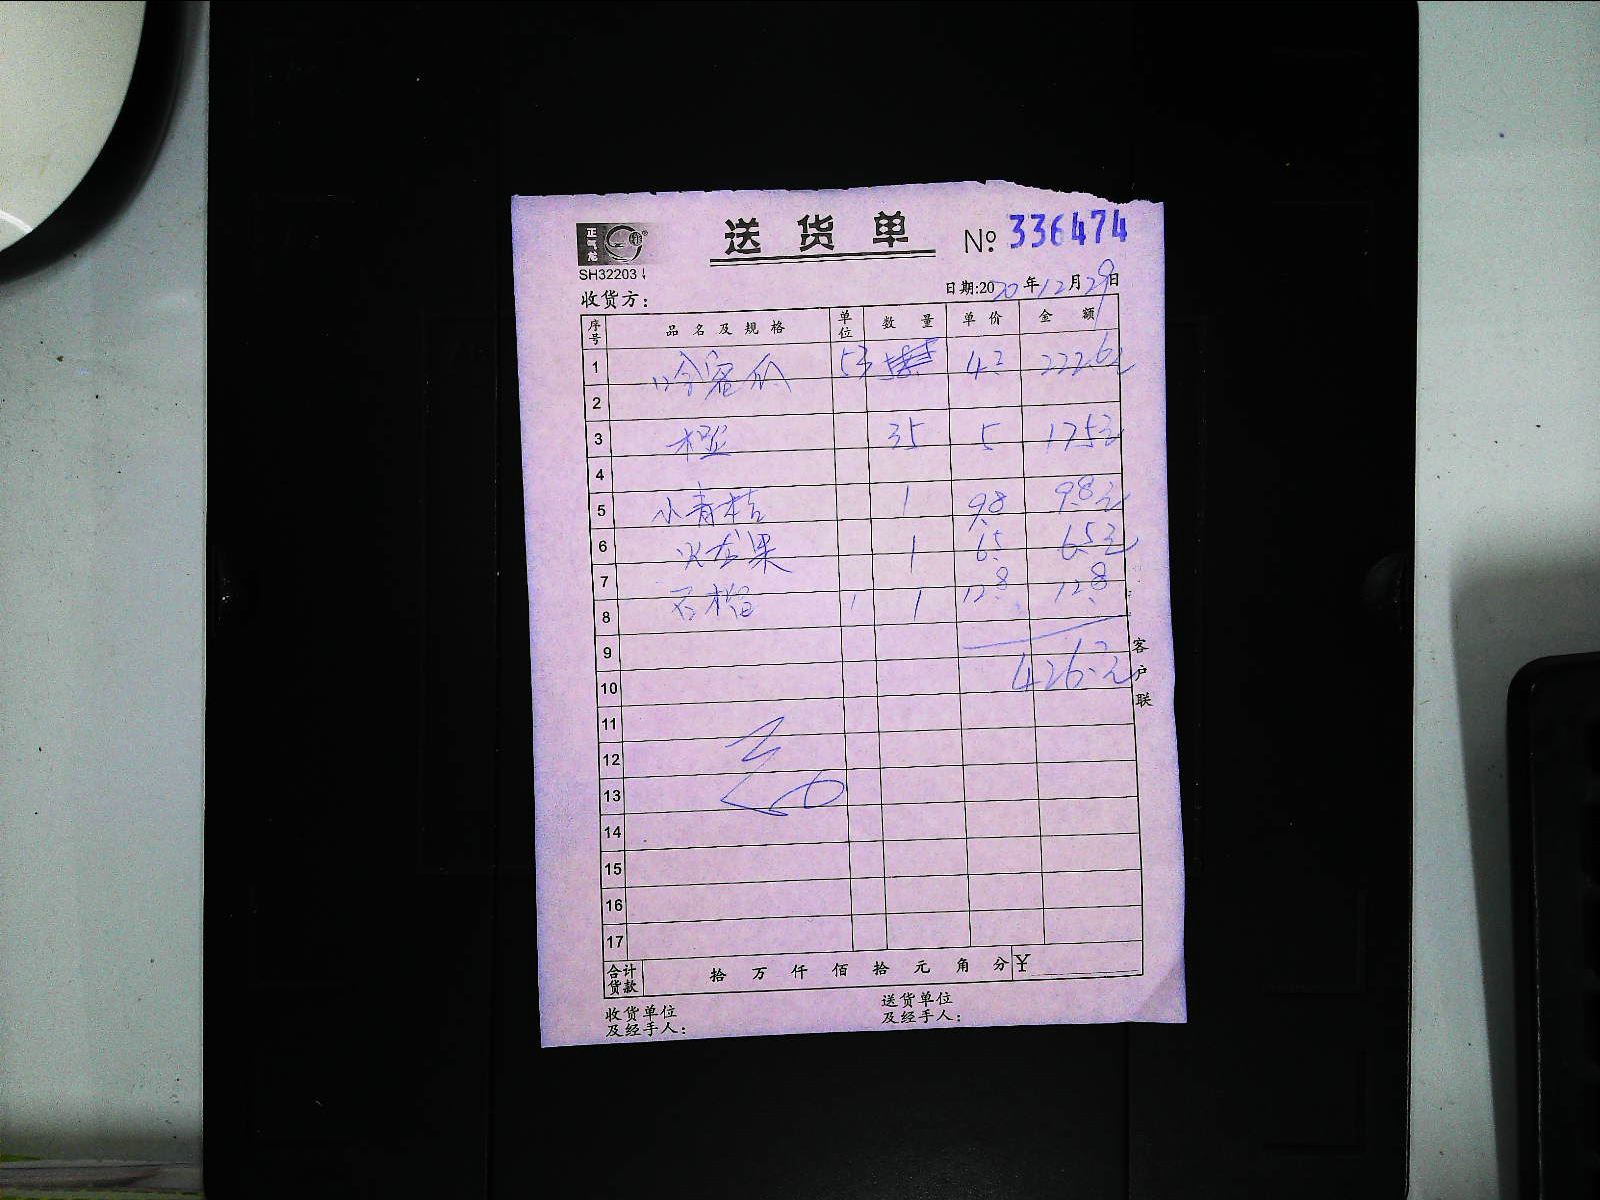 正气龙
送货单 №: 336474
SH32203
收货方: 日期:2020年12月29日
序号 品名及规格 单位 数量 单价 金额
1 哈密瓜 53 4.2 222.6元
2
3 橙 35 5 175元
4
5 小青桔 1 9.8 9.8元
6 火龙果 1 6.5 6.5元
7
8 石榴 1 12.8 12.8
9
10 426.7元
11
12
13
14
15
16
17
客户联
合计货款 拾 万 仟 佰 拾 元 角 分 ¥
收货单位及经手人: 送货单位及经手人: